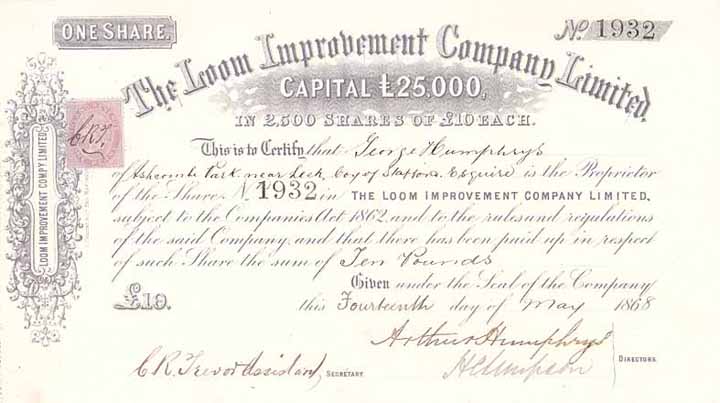 ONE SHARE.
No. 1932
The Loom Improvement Company Limited.
CAPITAL £25,000,
IN 2,500 SHARES OF £10 EACH.
LOOM IMPROVEMENT COMPY LIMITED.
C.R.T.
This is to Certify that George Humphrys
of Ashcombe Park near Leek, Coy of Stafford Esquire is the Proprietor
of the Share No 1932 in THE LOOM IMPROVEMENT COMPANY LIMITED,
subject to the Companies Act 1862, and to the rules and regulations
of the said Company, and that there has been paid up in respect
of such Share the sum of Ten Pounds
Given under the Seal of the Company
£10. this Fourteenth day of May 1868
Arthur Humphrys
C.R. Trevor Assistant, SECRETARY
DIRECTORS.